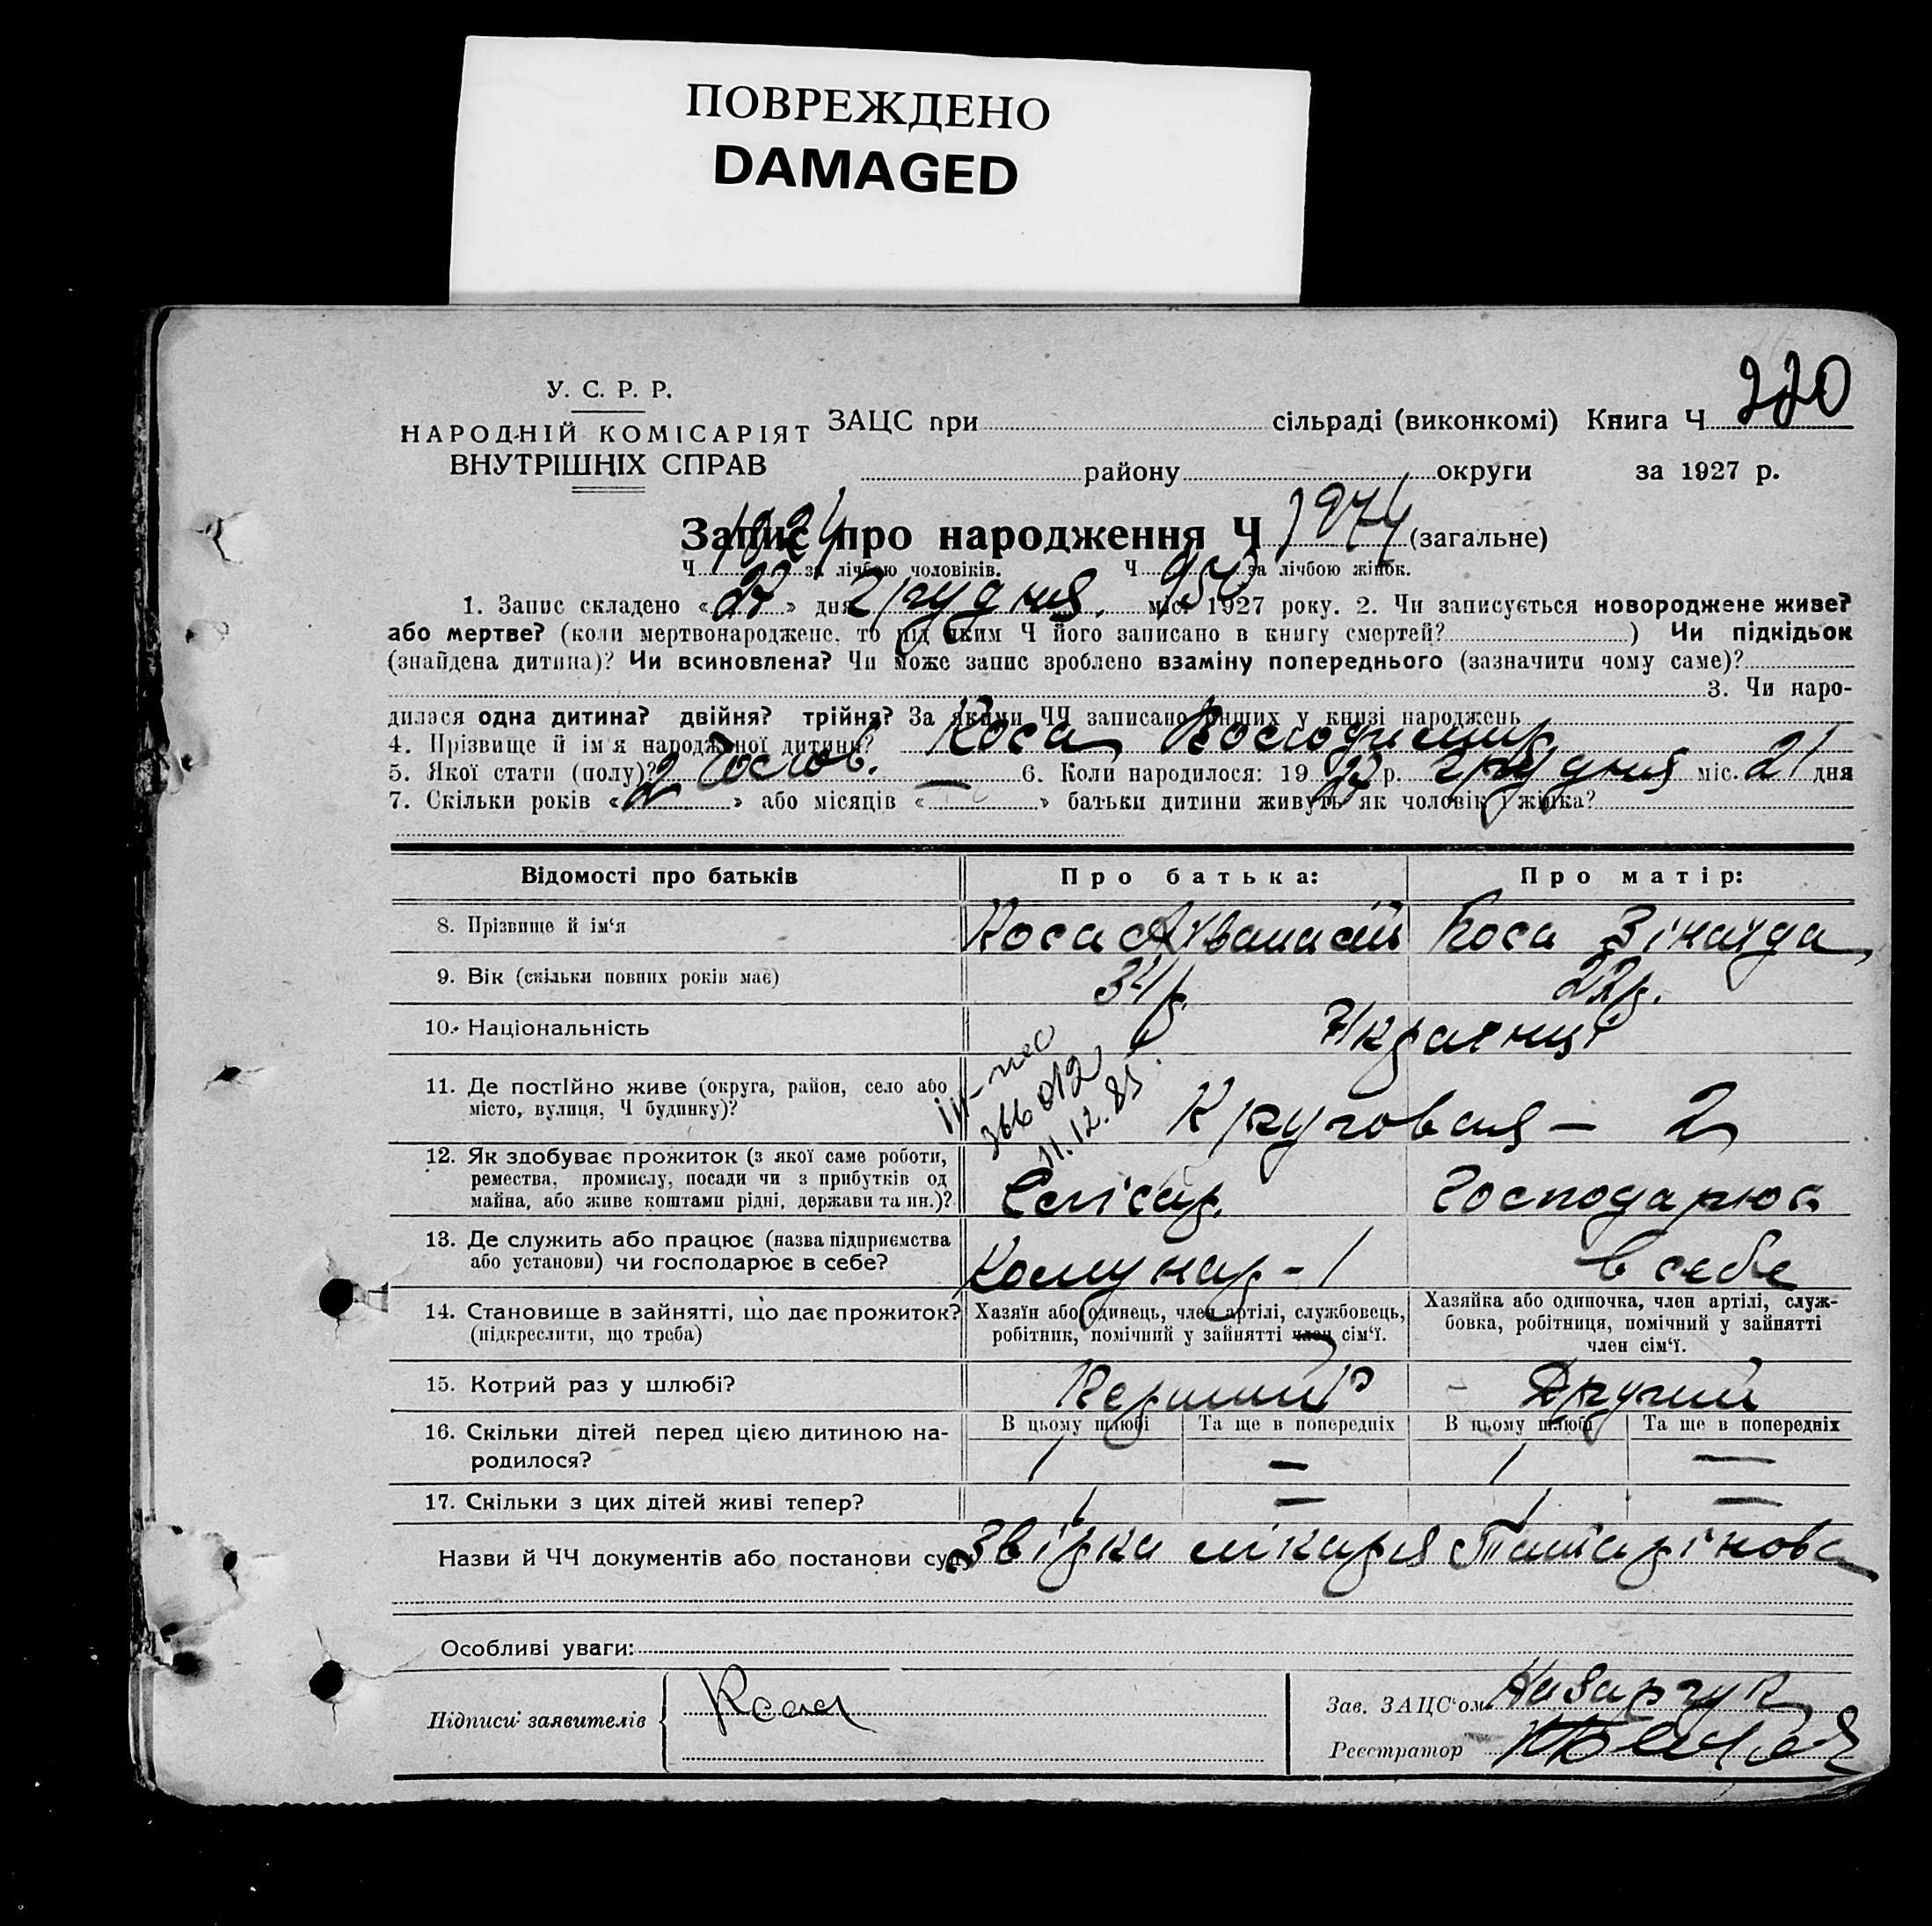 ПОВРЕЖДЕНО
DAMAGED
220
У. С. Р. Р.
НАРОДНІЙ КОМІСАРІЯТ
ВНУТРІШНІХ СПРАВ
ЗАЦС при сільраді (виконкомі) Книга Ч
району округи за 1927 р.
Запис про народження Ч 1974 (загальне)
Ч 1024 за лічбою чоловіків. Ч 950 за лічбою жінок.
1. Запис складено « 27 » дня грудня міс. 1927 року. 2. Чи записується новороджене живе?
або мертве? (коли мертвонароджене, то під яким Ч його записано в книгу смертей? ) Чи підкідьок
(знайдена дитина)? Чи всиновлена? Чи може запис зроблено взаміну попереднього (зазначити чому саме)?
3. Чи наро-
дилася одна дитина? двійня? трійня? За якими ЧЧ записано инших у книзі народжень
4. Прізвище й ім'я народженої дитини? Коса Володимир
5. Якої стати (полу)? Чолов. — 6. Коли народилося: 19 27 р. грудня міс. 21 дня
7. Скільки років « 2 » або місяців « » батьки дитини живуть як чоловік і жінка?
Відомості про батьків Про батька: Про матір:
8. Прізвище й ім'я Коса Афанасій Коса Зінаїда
9. Вік (скільки повних років має) 34 р. 22 р.
10. Національність Українці
11. Де постійно живе (округа, район, село або
місто, вулиця, Ч будинку)? Круговая – 2
366012
11.12.85
12. Як здобуває прожиток (з якої саме роботи,
ремества, промислу, посади чи з прибутків од
майна, або живе коштами рідні, держави та ин.)? Слісар. Господарює
13. Де служить або працює (назва підприємства
або установи) чи господарює в себе? Комунар – 1 в себе
14. Становище в зайнятті, що дає прожиток?
(підкреслити, що треба)
Хазяїн або одинець, член артілі, службовець,
робітник, помічний у зайнятті член сім'ї.
Хазяйка або одиночка, член артілі, служ-
бовка, робітниця, помічний у зайнятті
член сім'ї.
15. Котрий раз у шлюбі? Перший Другий
16. Скільки дітей перед цією дитиною на-
родилося?
В цьому шлюбі Та ще в попередніх В цьому шлюбі Та ще в попередніх
1 — 1 —
17. Скільки з цих дітей живі тепер? 1 — 1 —
Назви й ЧЧ документів або постанови суду Звірка лікаря
Особливі уваги:
Підписи заявителів Коса
Зав. ЗАЦС'ом Назарчук
Реєстратор